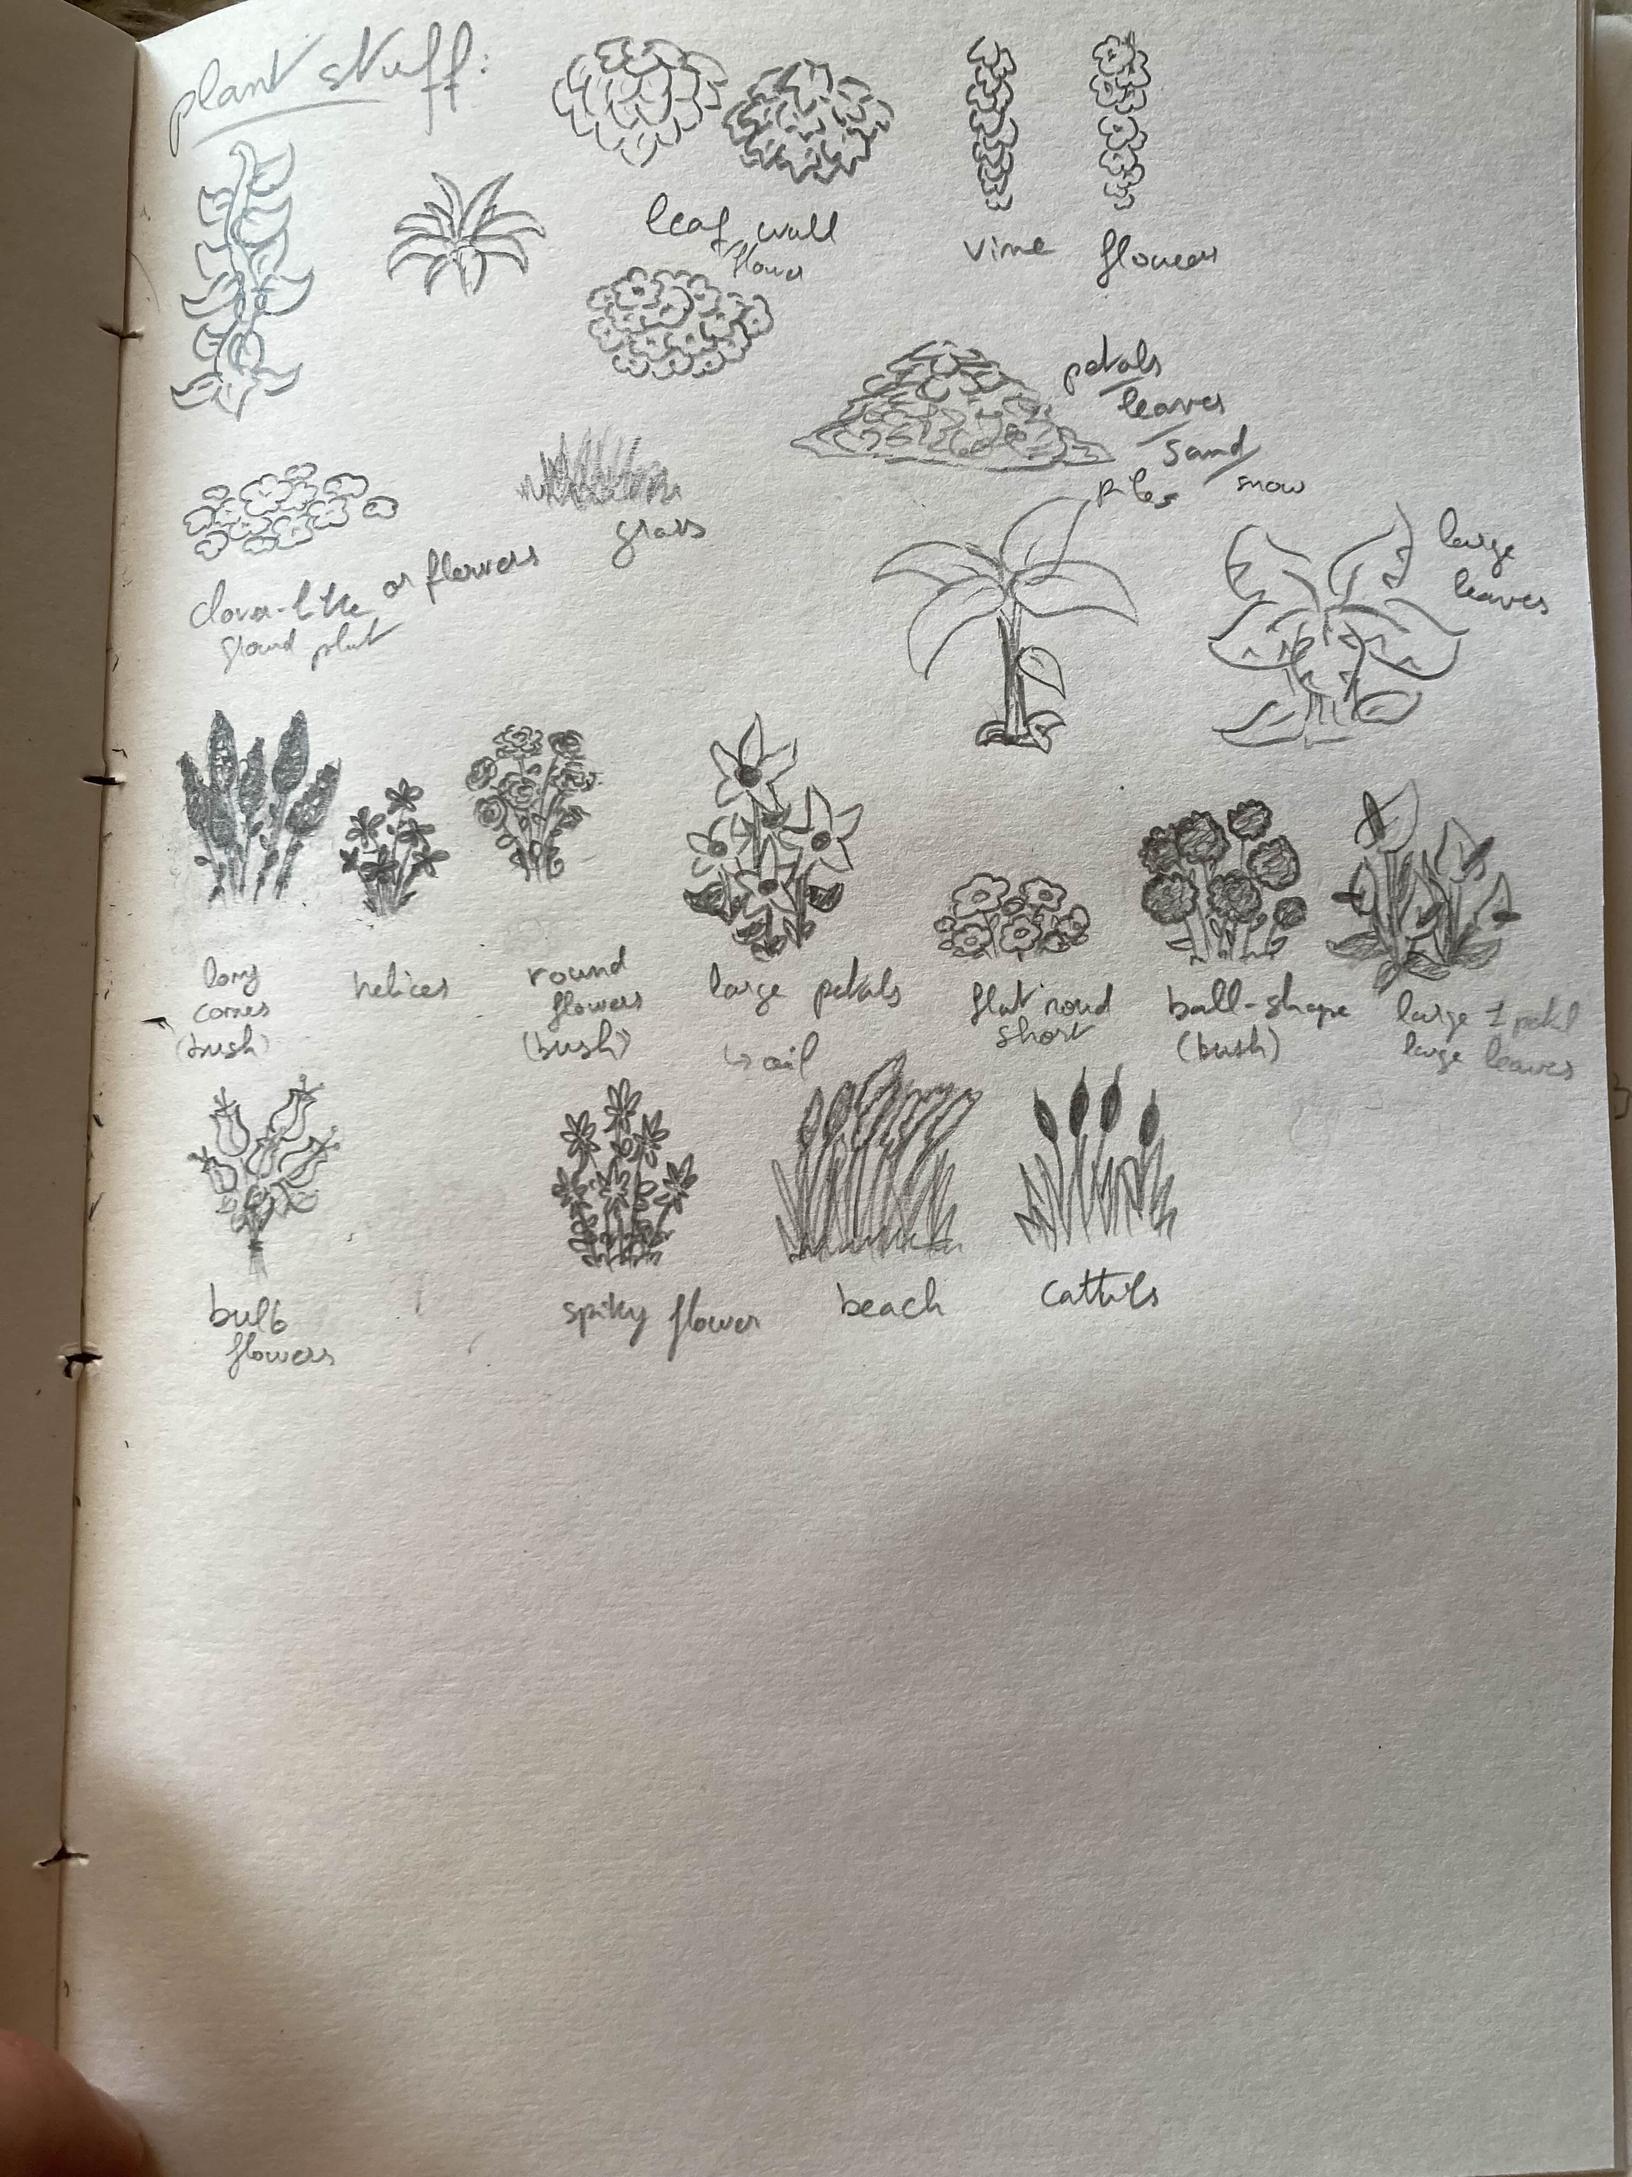 plant stuff:
leaf wall
flower
vine flowers
petals
leaves
sand/
snow
piles
grass
clover-like or flowers
ground plant
large
leaves
long
cones
(bush)
helices
round
flowers
(bush)
large petals
flat round
short
ball-shape
(bush)
large 1 petal
large leaves
bulb
flowers
spiky flower
beach
cattails